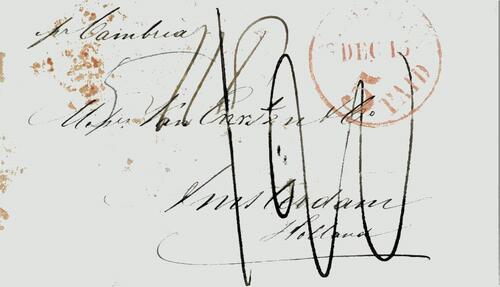 pr Cambria
DEC 15
PAID
Messrs. Van & Co
Amsterdam
Holland